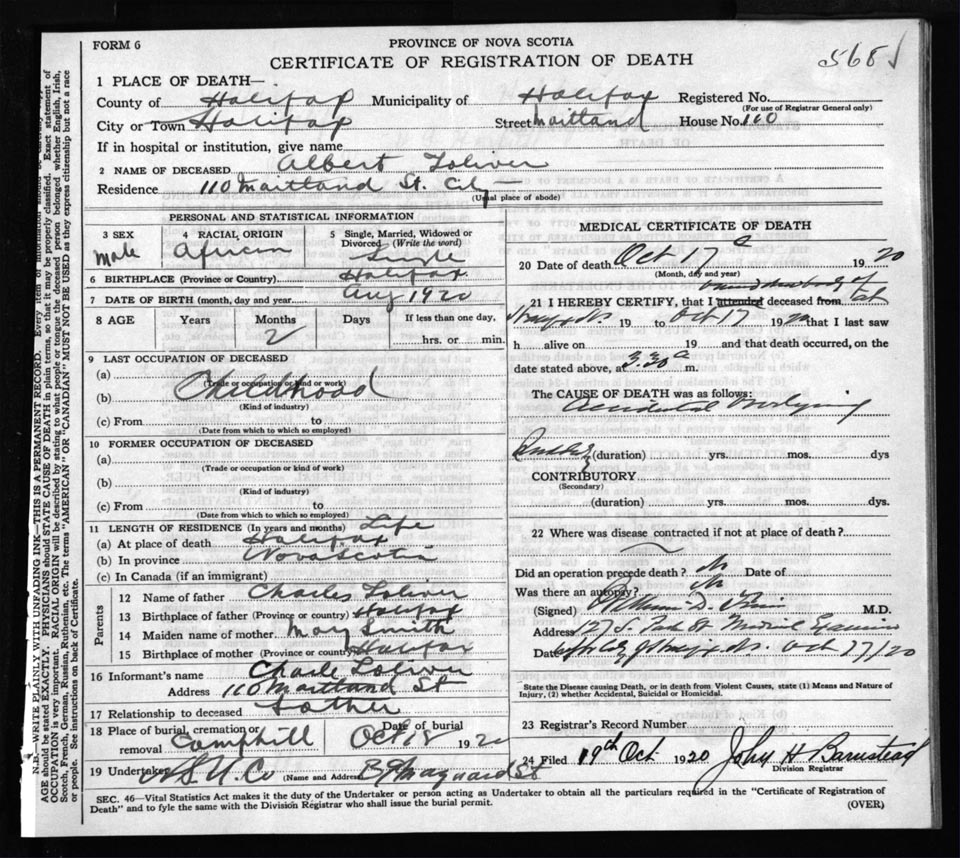 FORM 6
PROVINCE OF NOVA SCOTIA
CERTIFICATE OF REGISTRATION OF DEATH
5681
1 PLACE OF DEATH—
County of Halifax Municipality of Halifax Registered No.
(For use of Registrar General only)
City or Town Halifax Street Maitland House No. 110
If in hospital or institution, give name
2 NAME OF DECEASED Albert Toliver
Residence 110 Maitland St. City
(Usual place of abode)
PERSONAL AND STATISTICAL INFORMATION
3 SEX
Male
4 RACIAL ORIGIN
African
5 Single, Married, Widowed or Divorced (Write the word)
Single
6 BIRTHPLACE (Province or Country) Halifax
7 DATE OF BIRTH (month, day and year) Aug 1920
8 AGE Years Months Days If less than one day,
2 hrs. or min.
9 LAST OCCUPATION OF DECEASED
(a)
(Trade or occupation or kind of work)
(b) Childhood
(Kind of industry)
(c) From to
(Date from which to which so employed)
10 FORMER OCCUPATION OF DECEASED
(a)
(Trade or occupation or kind of work)
(b)
(Kind of industry)
(c) From to
(Date from which to which so employed)
11 LENGTH OF RESIDENCE (In years and months) Life
(a) At place of death Halifax
(b) In province Nova Scotia
(c) In Canada (if an immigrant)
Parents
12 Name of father Charles Toliver
13 Birthplace of father (Province or country) Halifax
14 Maiden name of mother Mary Smith
15 Birthplace of mother (Province or country) Halifax
16 Informant's name Charles Toliver
Address 110 Maitland St
17 Relationship to deceased Father
18 Place of burial, cremation or removal Camphill Date of burial Oct 18 1920
19 Undertaker N.S.U.Co (Name and Address) Maynard St
MEDICAL CERTIFICATE OF DEATH
20 Date of death Oct 17 a 1920
(Month, day and year)
21 I HEREBY CERTIFY, that I attended deceased from
19 to Oct 17 1920 that I last saw
h alive on 19 and that death occurred, on the
date stated above, at 3.30 a m.
The CAUSE OF DEATH was as follows:
Accidental
(duration) yrs. mos. dys
CONTRIBUTORY
(Secondary)
(duration) yrs. mos. dys.
22 Where was disease contracted if not at place of death?
Did an operation precede death? No Date of
Was there an autopsy? No
(Signed) William D. M.D.
Address Park St Medical Examiner
Date Oct 17/20
State the Disease causing Death, or in death from Violent Causes, state (1) Means and Nature of Injury, (2) whether Accidental, Suicidal or Homicidal.
23 Registrar's Record Number
24 Filed 19th Oct 1920 John H Barnstead
Division Registrar
SEC. 46—Vital Statistics Act makes it the duty of the Undertaker or person acting as Undertaker to obtain all the particulars required in the "Certificate of Registration of
Death" and to fyle the same with the Division Registrar who shall issue the burial permit.
(OVER)
N.B.—WRITE PLAINLY WITH UNFADING INK—THIS IS A PERMANENT RECORD. Every item of information should be
AGE should be stated EXACTLY. PHYSICIANS should STATE CAUSE OF DEATH in plain terms, so that it may be properly classified. Exact statement of
OCCUPATION is very important. RACIAL ORIGIN will be described by stating to what people or tongue the deceased person belonged whether English, Irish,
Scotch, French, German, Russian, Ruthenian, etc. The terms "AMERICAN" OR "CANADIAN" MUST NOT BE USED as they express citizenship but not a race
or people. See instructions on back of Certificate.